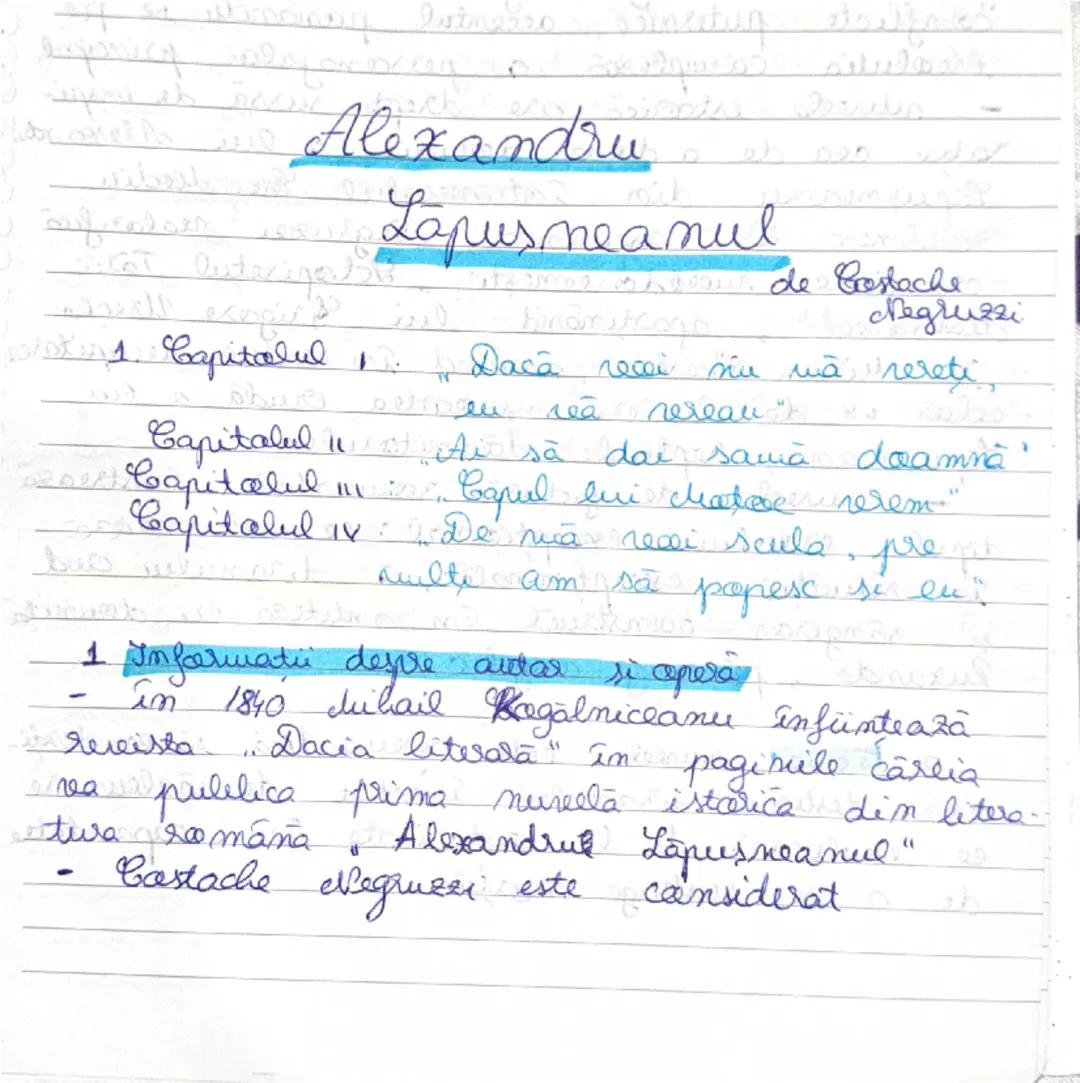 Alexandru
Lăpușneanul
de Costache
Negruzzi
1. Capitolul I. „Dacă voi nu mă vreți,
eu vă vreau"
Capitolul II „Ai să dai samă doamnă"
Capitolul III : „Capul lui Motoc vrem"
Capitolul IV : „De mă voi scula, pre
mulți am să popesc și eu"
1 Informatii despre autor si operă
- în 1840 Mihail Kogălniceanu înființează
revista „Dacia literară" în paginile căreia
va publica prima nuvelă istorică din litera-
tura română „Alexandru Lăpușneanul"
- Costache Negruzzi este considerat